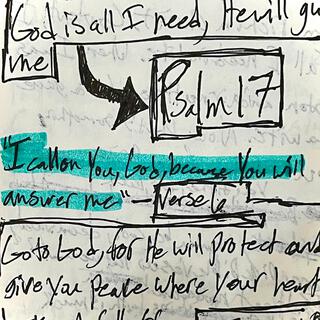 God is all I need, He will gu
me
Psalm 17
"I call on You, God, because You will
answer me" - Verse 6
Go to God, for He will protect and
give you peace where your heart